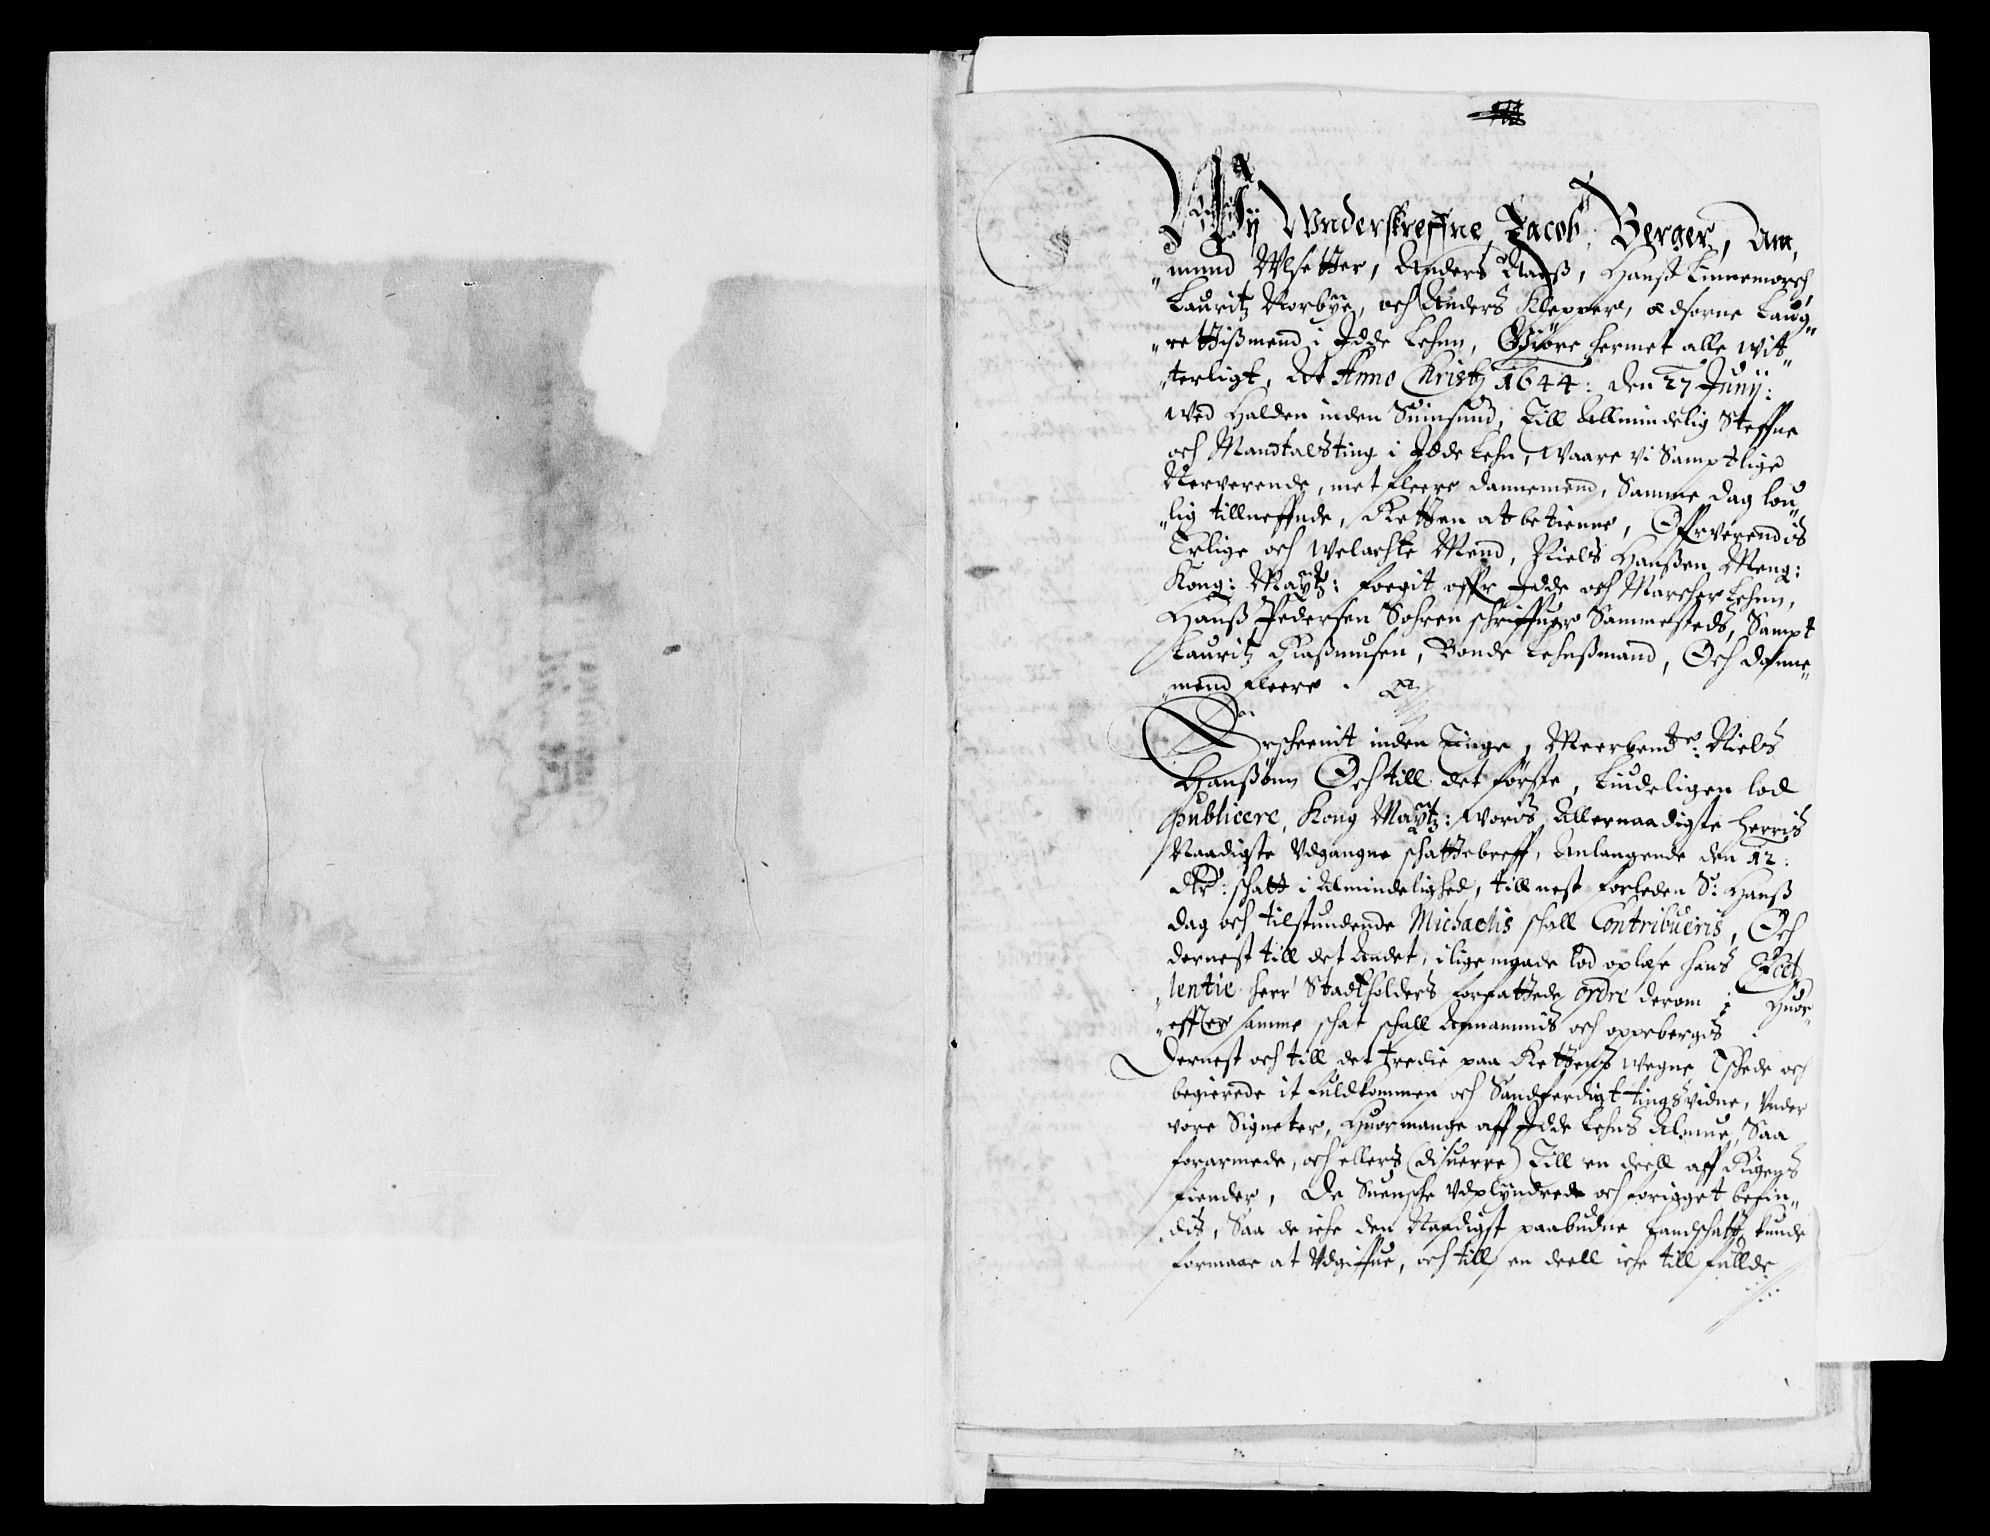 Wy Vnderskreffne, Jacob Berger, Am,
„mund Vlsetter, Anders Aaeß, Hanß Linnemorch
Lauritz Norbye, och Anders Klepper, edsorne Laug„
„rettißmend i Idde Lehnn, Giöre hermet alle wit„
„terligt, At Anno Christj 1644: den 27 Junij:
wed Halden inden Suinsund, Till Allmindelig Steffne
och Mandtalsting i Idde Lehn, waare vi Samptlige
Nerverende, met fleere dannemend, Samme dag lou„
„lig tillneffnde, Retten at betienne, Offrverendis
Erlige och welachte Mend, Niels Hanßen Meng:
Kong: Maytz: foegit offr Idde och Marcher Lehnn,
Hanß Pedersen Sohren schriffuer Sammesteds, Sampt
Lauritz Raßmusen, Bonde Lehnßmand, Och danne„
„mend fleere.
Erscheenit inden Tinge, Meerbente: Niels
Hanßönn Och till det förste, Liudeligen lod
publicere, Kong Maytz: woris Allernaadigste Herris
Naadigste Vdgangne schattebreff, Anlangende den 12:
dlr: schatt i Almindelighed, till nest forleden S: Hanß
dag och tilstundende Michaelis schall Contribueris, Och
dernest till det Andet, iligemaade lod oplæse hans Excel
„lentie herr Stadtholders forfattede ordre derom i Huor„
„effter samme schat schall Annammis och oppebergis
Dernest och till det tredie paa Rettens wegne Eschede och
begierede it fuldkommen och Sandferdigt tingsvidne, Vnder
vore Signeter, Huormange aff Idde Lehns Almue, Saa
forarmede, och ellers (disuerre) Till en deell aff Rigens
fiender, De Suensche Vdplyndrede och forigget befin„
dis, Saa de iche den Naadigst paabudne Landschatt kunde
formaae at Vdgiffue, och till en deell iche till fullde